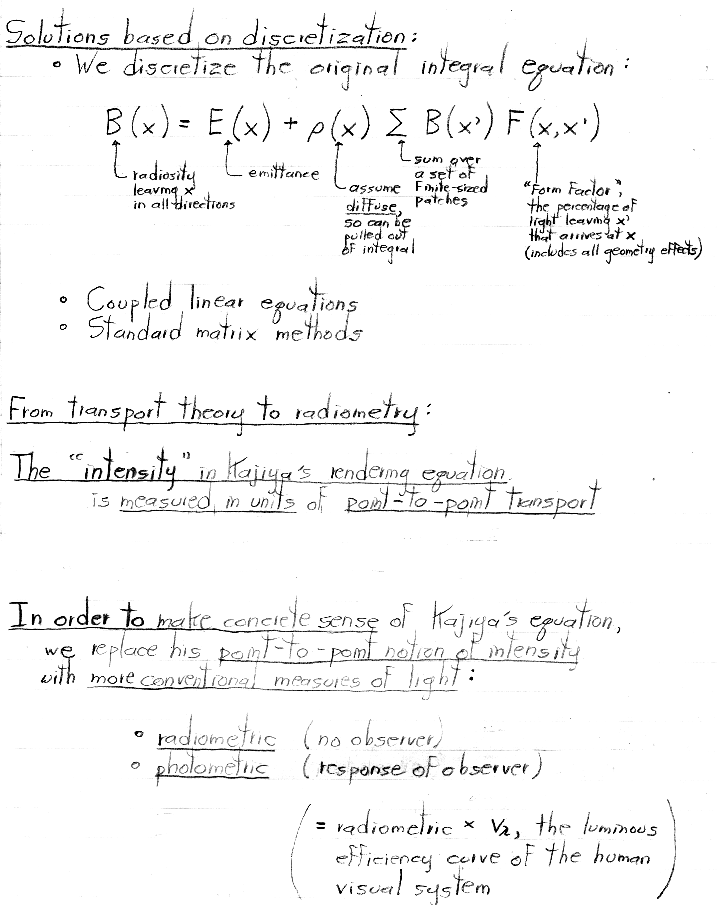 Solutions based on discretization:
• We discretize the original integral equation:
B(x) = E(x) + ρ(x) Σ B(x') F(x,x')
radiosity
leaving x
in all directions
emittance
assume
diffuse,
so can be
pulled out
of integral
sum over
a set of
finite-sized
patches
"Form Factor",
the percentage of
light leaving x'
that arrives at x
(includes all geometry effects)
• Coupled linear equations
• Standard matrix methods
From transport theory to radiometry:
The "intensity" in Kajiya's rendering equation
is measured in units of point-to-point transport
In order to make concrete sense of Kajiya's equation,
we replace his point-to-point notion of intensity
with more conventional measures of light:
• radiometric (no observer)
• photometric (response of observer)
(= radiometric × Vλ, the luminous
efficiency curve of the human
visual system)